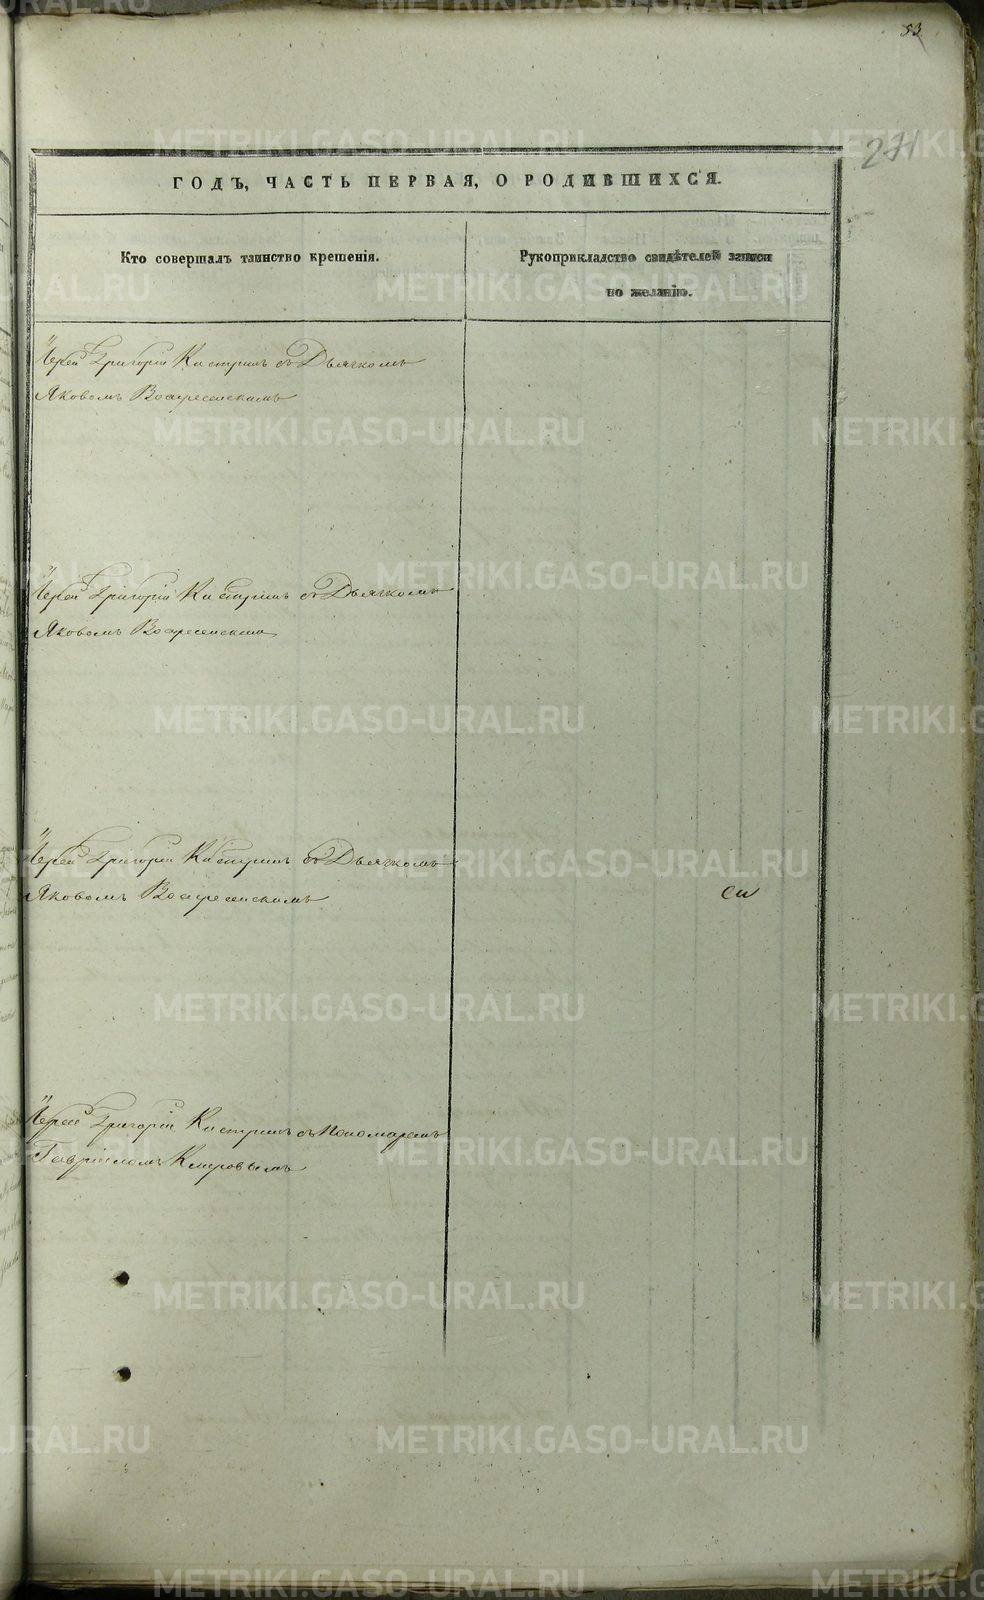 53
271
ГОДЪ, ЧАСТЬ ПЕРВАЯ, О РОДИВШИХСЯ.
Кто совершалъ таинство крещенія.
Рукоприкладство свидѣтелей записи
по желанію.
Іерей Григорій Кастринъ съ Дьячкомъ
Яковомъ Воскресенскимъ
Іерей Григорій Кастринъ съ Дьячкомъ
Яковомъ Воскресенскимъ
Іерей Григорій Кастринъ съ Дьячкомъ
Яковомъ Воскресенскимъ
Іерей Григорій Кастринъ съ Пономаремъ
Гавріиломъ
METRIKI.GASO-URAL.RU